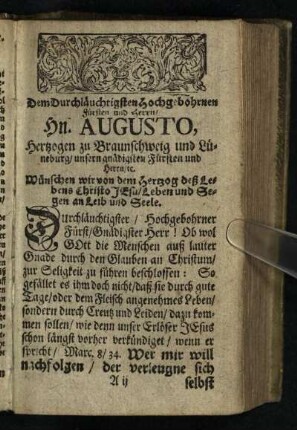 Dem Durchläuchtigsten Hochgebohrnen
Fürsten und Herrn/
Hn. AUGUSTO,
Hertzogen zu Braunschweig und Lü-
neburg/unsern gnädigsten Fürsten und
Herrn/ec.
Wünschen wir von dem Hertzog deß Le-
bens Christo JEsu/Leben und Se-
gen an Leib und Seele.
Durchläuchtigster / Hochgebohrner
Fürst/Gnädigster Herr ! Ob wol
GOtt die Menschen auß lauter
Gnade durch den Glauben an Christum/
zur Seligkeit zu führen beschlossen : So
gefället es ihm doch nicht/daß sie durch gute
Tage/oder dem Fleisch angenehmes Leben/
sondern durch Creutz und Leiden/ dazu kom-
men sollen/ wie denn unser Erlöser JEsus
schon längst vorher verkündiget/ wenn er
spricht / Marc. 8/34. Wer mir will
nachfolgen/ der verleugne sich
A ij selbst